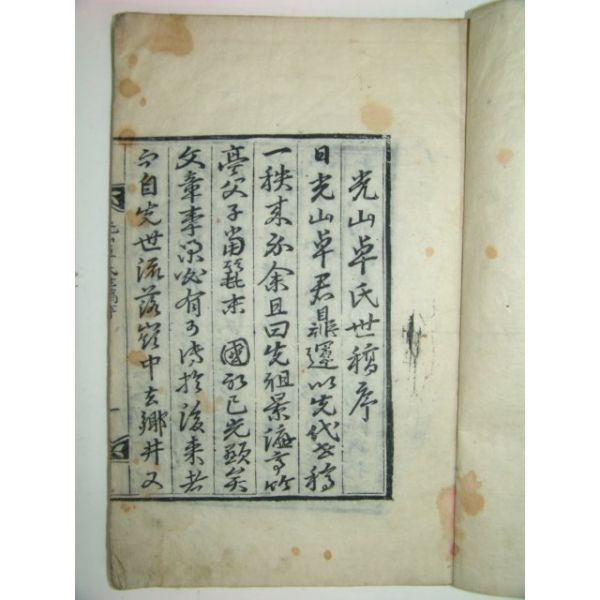 光山卓氏世稿序
日光山卓君鼎運以先代世稿
一秩来示余且曰先祖景濂亭竹
亭父子當麗末 國初已光顯矣
文章事業必有可傳於後来者
而自先世流落嶺中去鄉井又